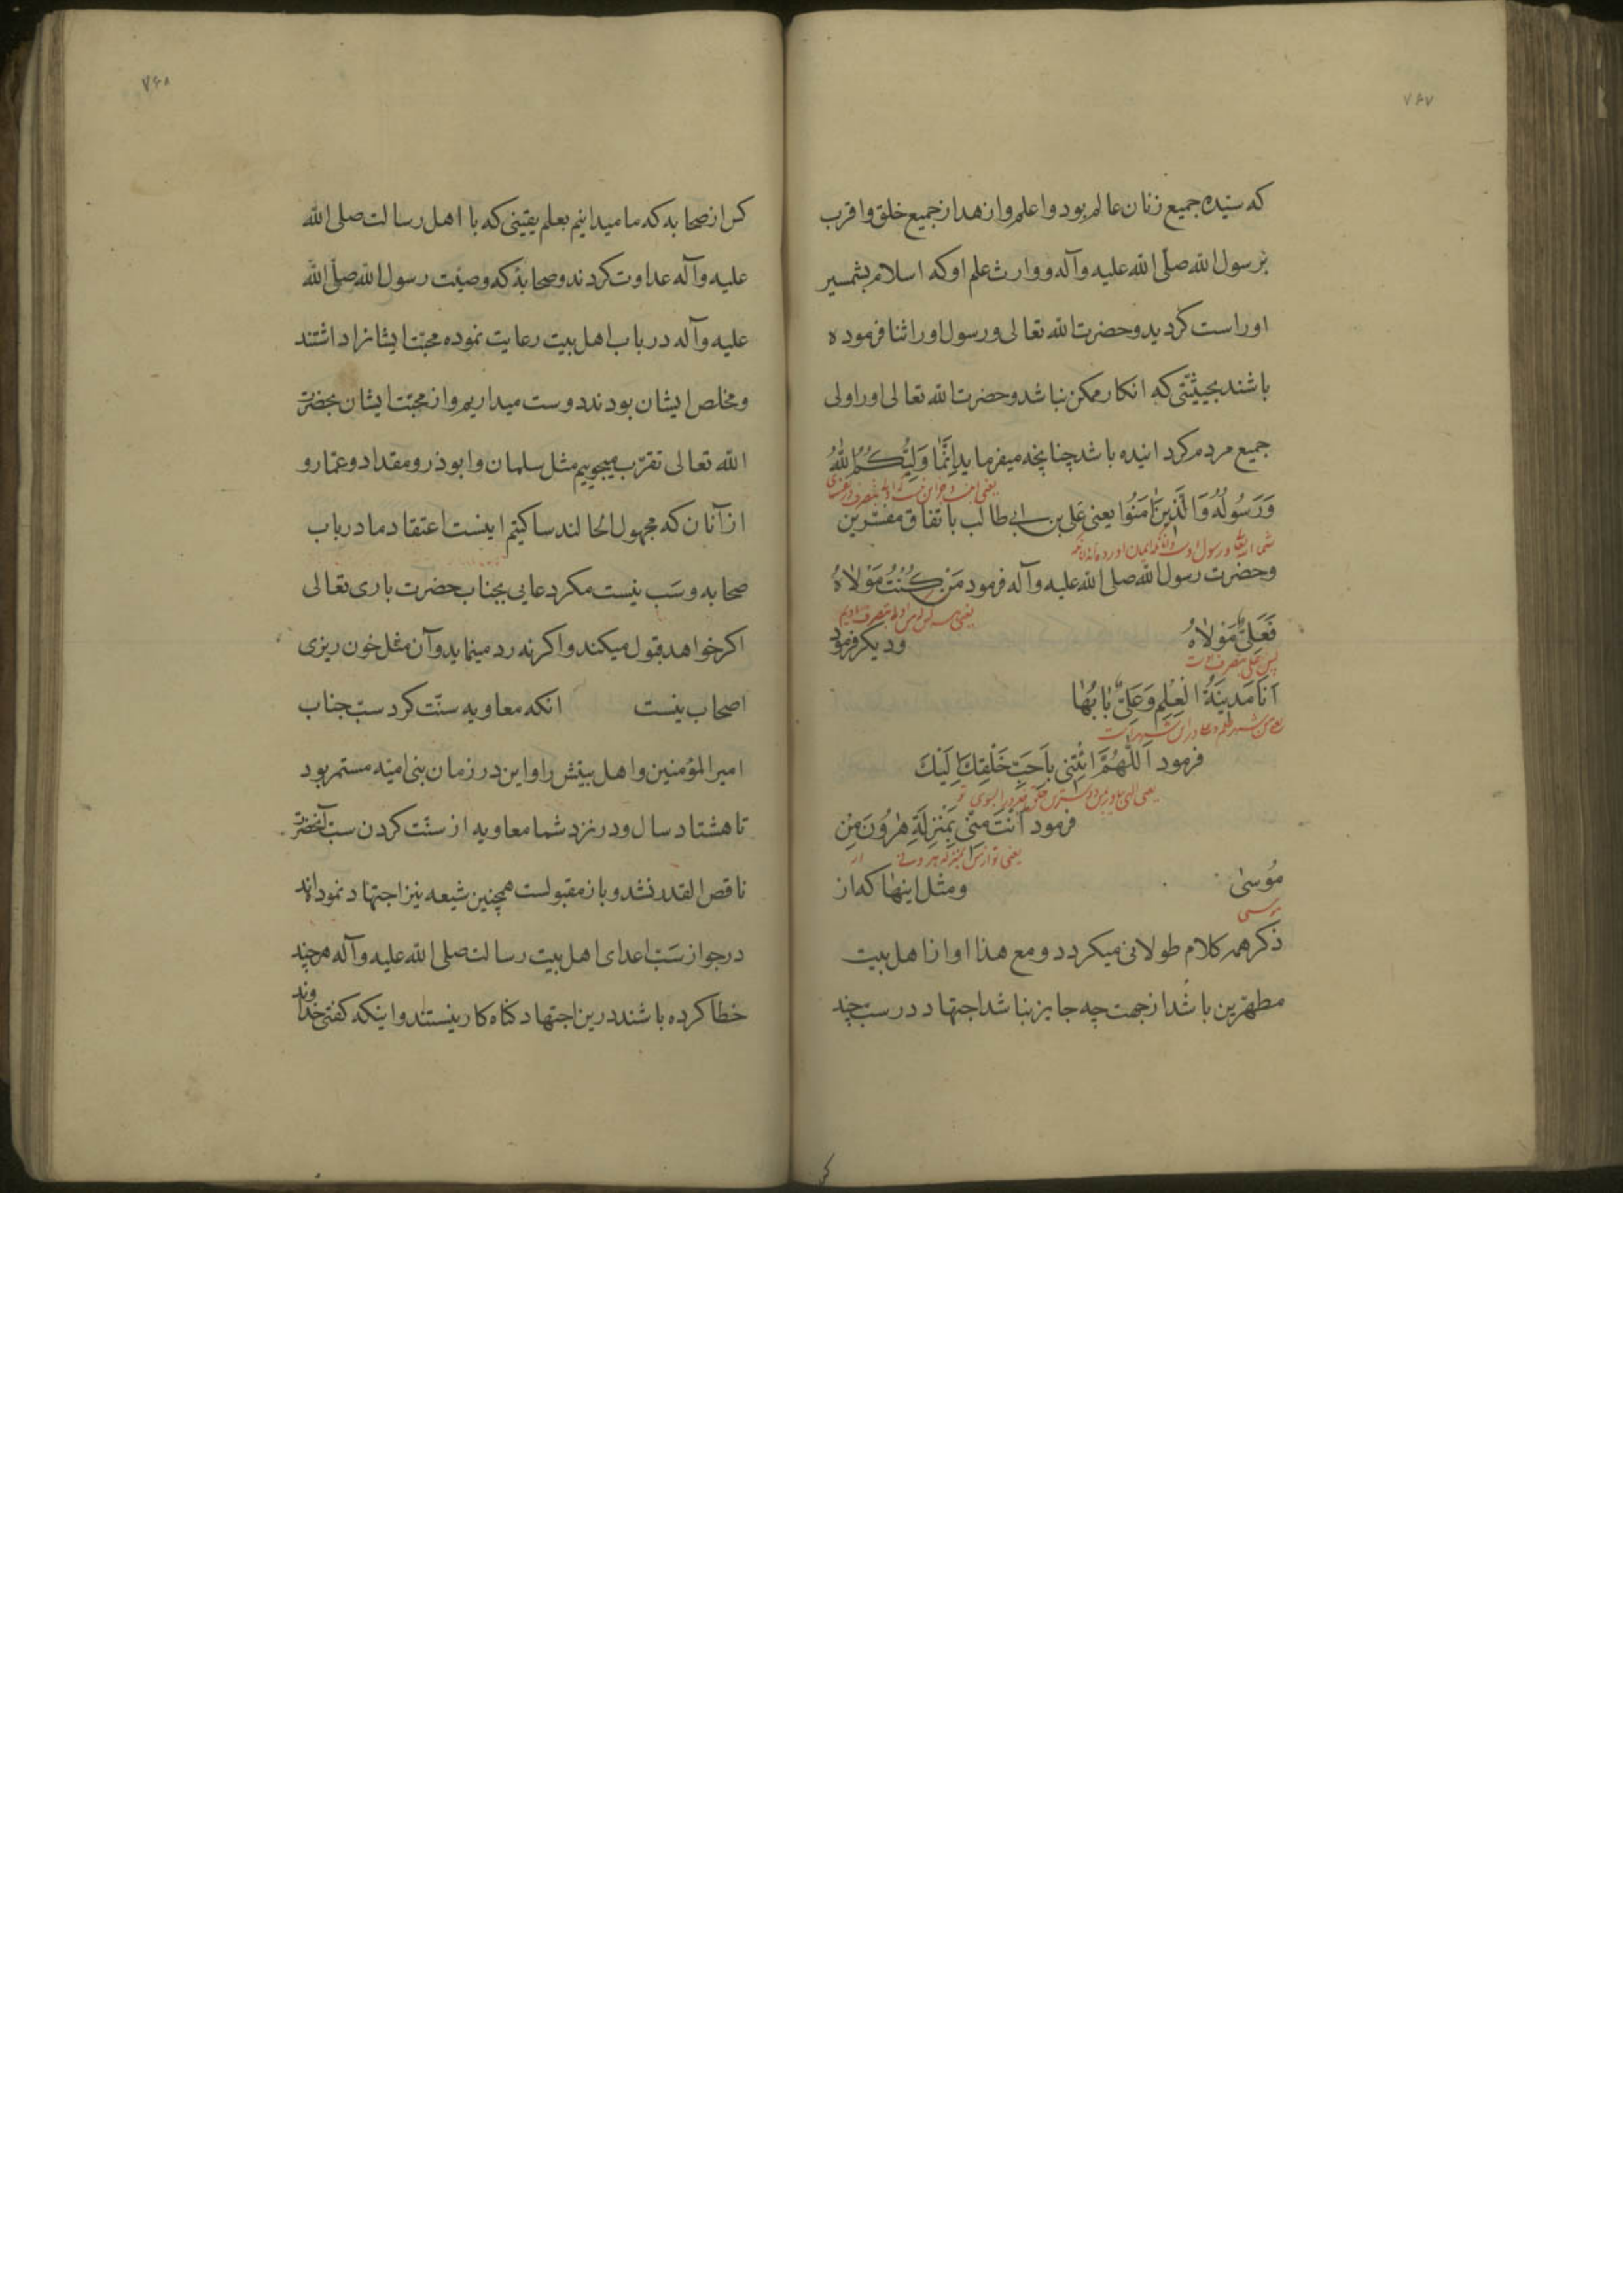 ۷۶۷
که سیّده جمیع زنان عالم بود و اعلم و ازهد از جمیع خلق و اقرب
برسول الله صلّی الله علیه وآله و وارث علم او که اسلام بشمسیر
او راست کردید و حضرت الله تعالی و رسول او را ثنا فرموده
باشند بحیثیّتی که انکار ممکن نباشد و حضرت الله تعالی او را ولی
جمیع مردم کردانیده باشد چنانچه میفرماید اِنَّمٰا وَلِیُّکُمُ اللّٰهُ
وَرَسُولُهُ وَالَّذِینَ اٰمَنُوا یعنی علی بن ابی طالب باتفاق مفسّرین
وحضرت رسول الله صلی الله علیه وآله فرمود مَنْ کُنْتُ مَوْلاٰهُ
فَعَلِیٌّ مَوْلاٰهُ ودیکر فرمود
اَنَا مَدِینَةُ الْعِلْمِ وَعَلِیٌّ بٰابُهٰا
یعنی من شهر علم و علی در این شهر است
فرمود اَللّٰهُمَّ ائْتِنِی بِاَحَبِّ خَلْقِكَ اِلَیْكَ
فرمود اَنْتَ مِنِّی بِمَنْزِلَةِ هٰرُونَ مِنْ
یعنی تو از من بمنزله هرونی از
مُوسیٰ ومثل اینها که از
موسی
ذکر همه کلام طولانی میکردد و مع هذا او از اهل بیت
مطهّرین باشد از جهت چه جایز نباشد اجتهاد در سبّ چند
کس
۷۶۸
کس از صحابه که ما میدانیم بعلم یقینی که با اهل رسالت صلی الله
علیه وآله عداوت کردند و صحابۀ که وصیّت رسول الله صلّی الله
علیه وآله در باب اهل بیت رعایت نموده محبّت ایشانرا داشتند
و مخلص ایشان بودند دوست میداریم و از محبّت ایشان بحضرت
الله تعالی تقرّب میجوییم مثل سلمان و ابوذر و مقداد و عمّار و
از آنان که مجهول الحالند ساکتیم اینست اعتقاد ما در باب
صحابه و سَبّ نیست مکر دعایی بجناب حضرت باری تعالی
اکر خواهد قبول میکند و اکر نه رد مینماید و آن مثل خون ریزی
اصحاب نیست انکه معاویه سنّت کرد سبّ جناب
امیرالمؤمنین و اهل بیتش را و این در زمان بنی امیّه مستمر بود
تا هشتاد سال و در نزد شما معاویه از سنّت کردن سبّ آنحضرت
ناقص القدر نشد و باز مقبولست همچنین شیعه نیز اجتهاد نموده اند
در جواز سَبّ اعدای اهل بیت رسالت صلی الله علیه وآله هرچند
خطا کرده باشند درین اجتهاد کناه کار نیستند و اینکه کفتی خداوند